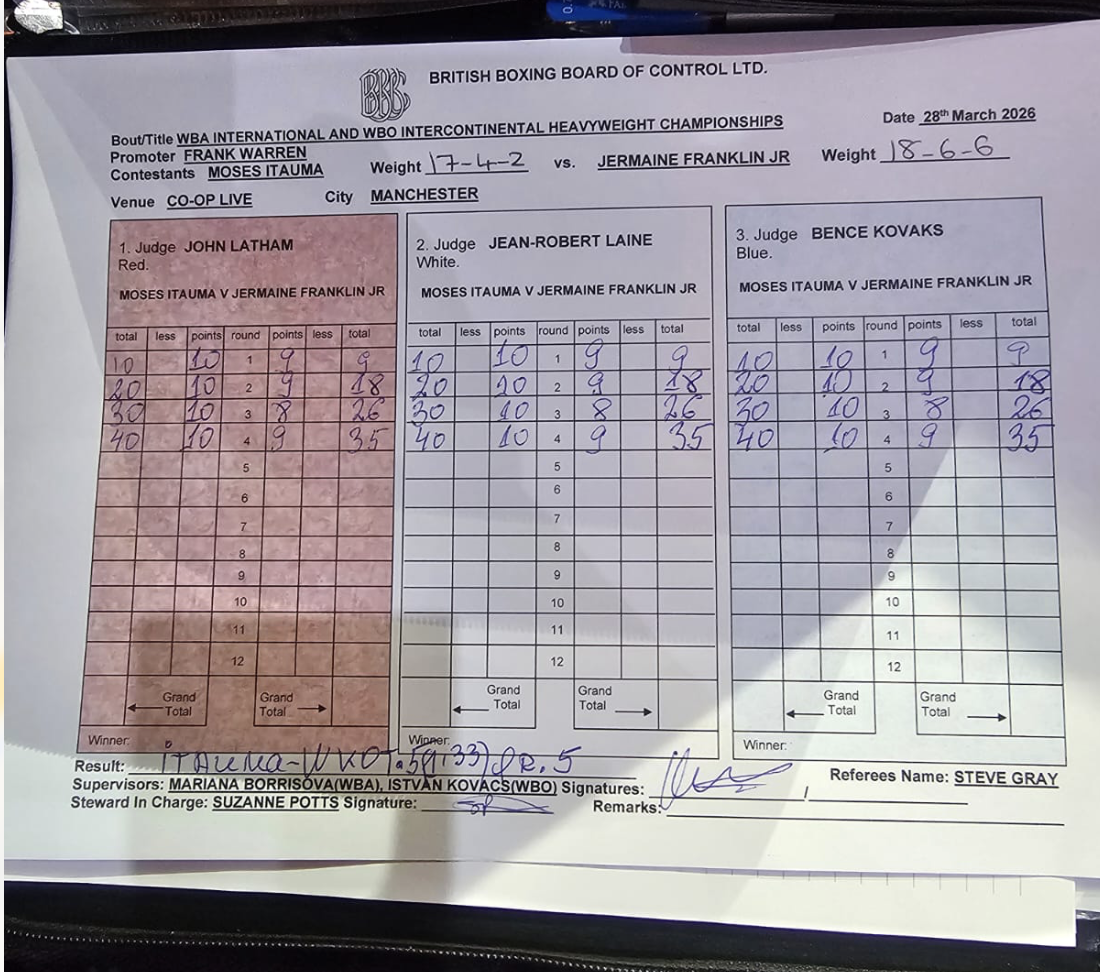 BRITISH BOXING BOARD OF CONTROL LTD.
Bout/Title WBA INTERNATIONAL AND WBO INTERCONTINENTAL HEAVYWEIGHT CHAMPIONSHIPS Date 28th March 2026
Promoter FRANK WARREN
Contestants MOSES ITAUMA Weight 17-4-2 vs. JERMAINE FRANKLIN JR Weight 18-6-6
Venue CO-OP LIVE City MANCHESTER
1. Judge JOHN LATHAM
Red.
MOSES ITAUMA V JERMAINE FRANKLIN JR
total less points round points less total
10 10 1 9 9
20 10 2 9 18
30 10 3 8 26
40 10 4 9 35
5
6
7
8
9
10
11
12
Grand Total Grand Total
Winner:
2. Judge JEAN-ROBERT LAINE
White.
MOSES ITAUMA V JERMAINE FRANKLIN JR
total less points round points less total
10 10 1 9 9
20 10 2 9 18
30 10 3 8 26
40 10 4 9 35
5
6
7
8
9
10
11
12
Grand Total Grand Total
Winner:
3. Judge BENCE KOVAKS
Blue.
MOSES ITAUMA V JERMAINE FRANKLIN JR
total less points round points less total
10 10 1 9 9
20 10 2 9 18
30 10 3 8 26
40 10 4 9 35
5
6
7
8
9
10
11
12
Grand Total Grand Total
Winner:
Result: ITAUMA-WKO 5
Supervisors: MARIANA BORRISOVA(WBA), ISTVAN KOVACS(WBO) Signatures: Referees Name: STEVE GRAY
Steward In Charge: SUZANNE POTTS Signature: Remarks: